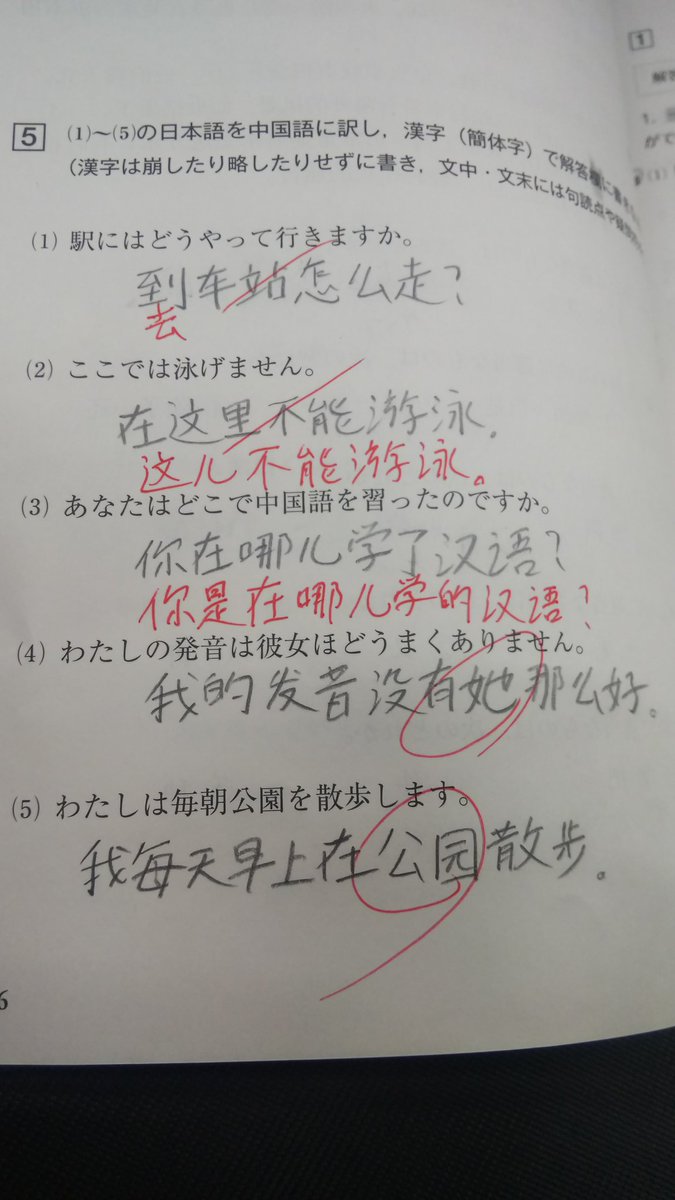 5 (1)～(5)の日本語を中国語に訳し，漢字（簡体字）で解答欄に書き
（漢字は崩したり略したりせずに書き，文中・文末には句読点や
(1) 駅にはどうやって行きますか。
到车站怎么走？
去
(2) ここでは泳げません。
在这里不能游泳.
这儿不能游泳。
(3) あなたはどこで中国語を習ったのですか。
你在哪儿学了汉语？
你是在哪儿学的汉语？
(4) わたしの発音は彼女ほどうまくありません。
我的发音没有她那么好。
(5) わたしは毎朝公園を散歩します。
我每天早上在公园散步。
6
1
解答
1.
がで
(1)